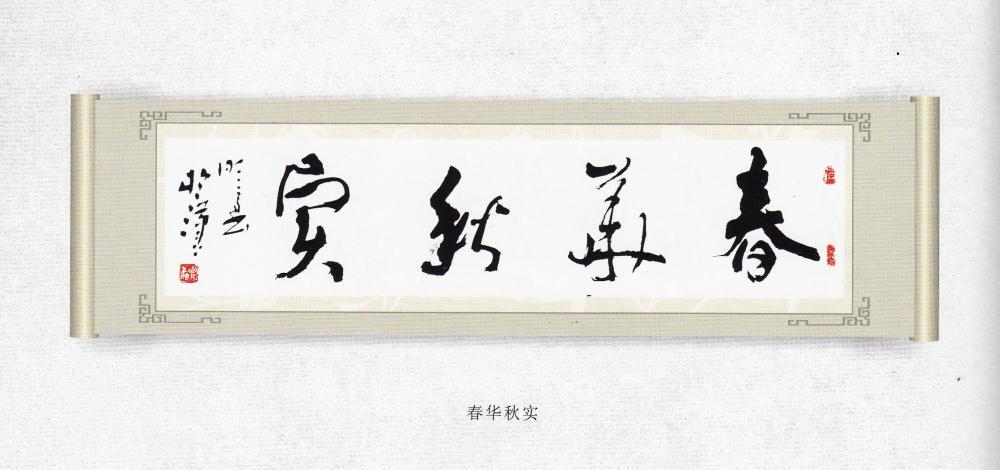 春華秋實
春华秋实